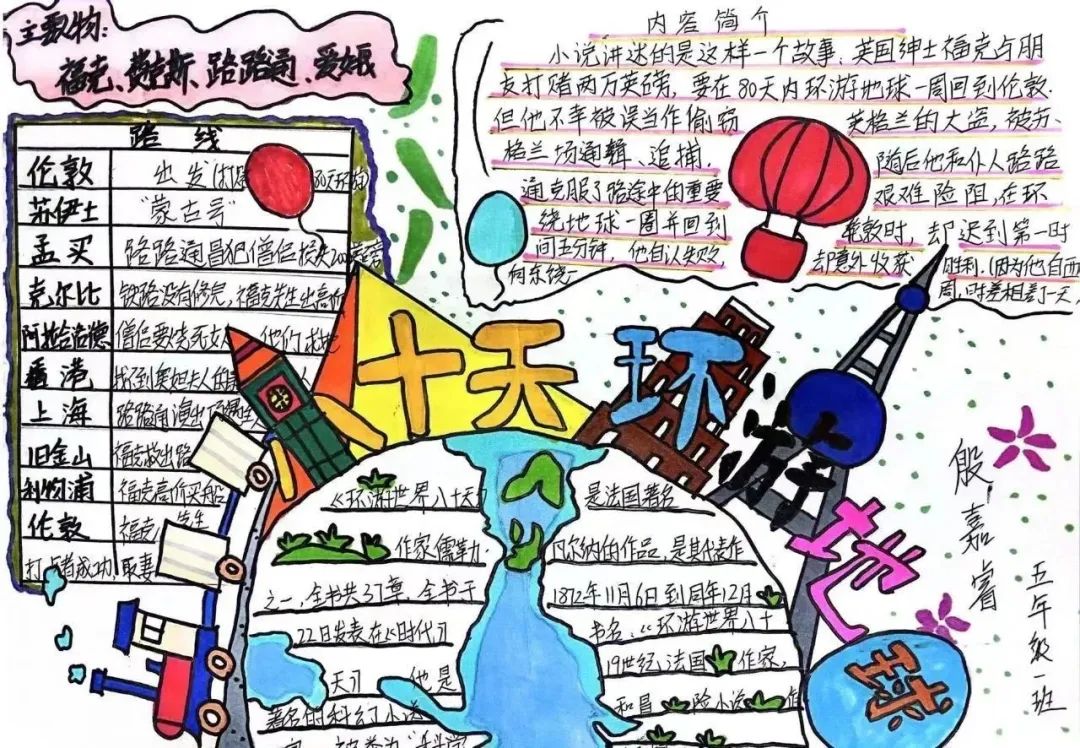 主要人物:
福克、费克斯、路路通、爱娥
路线
伦敦 出发
苏伊士 "蒙古号"
孟买 路路通冒犯僧侣损失200英镑
克尔比 铁路没有修完,福克先生出高价
阿拉哈洛德 僧侣要烧死女 他们求她
香港 找不到奥妲夫人的
上海 路路通演出
旧金山 福克救出路
利物浦 福克高价买船
伦敦 福克先生
打赌成功,取妻
内容简介
小说讲述的是这样一个故事、英国绅士福克与朋
友打赌两万英磅,要在80天内环游地球一周回到伦敦.
但他不幸被误当作偷窃 英格兰的大盗,被苏
格兰场通辑、追捕. 随后他和仆人路路
通克服了路途中的重要 艰难险阻,在环
绕地球一圈并回到 伦敦时,却迟到第一时
间五分钟,他自认失败 却意外收获 胜利.(因为他自西
向东绕 周,时差相差了一天,
八十天环游地球
《环游世界八十天》 是法国著名
作家儒勒· 凡尔纳的作品,是其代表作
之一,全书共37章,全书于 1872年11月6日到同年12月
22日发表在《时代》 书名:《环游世界八十
天》 他是 19世纪法国 作家,
著名的科幻小说 和冒 险小说 作
殷嘉睿
五年级一班